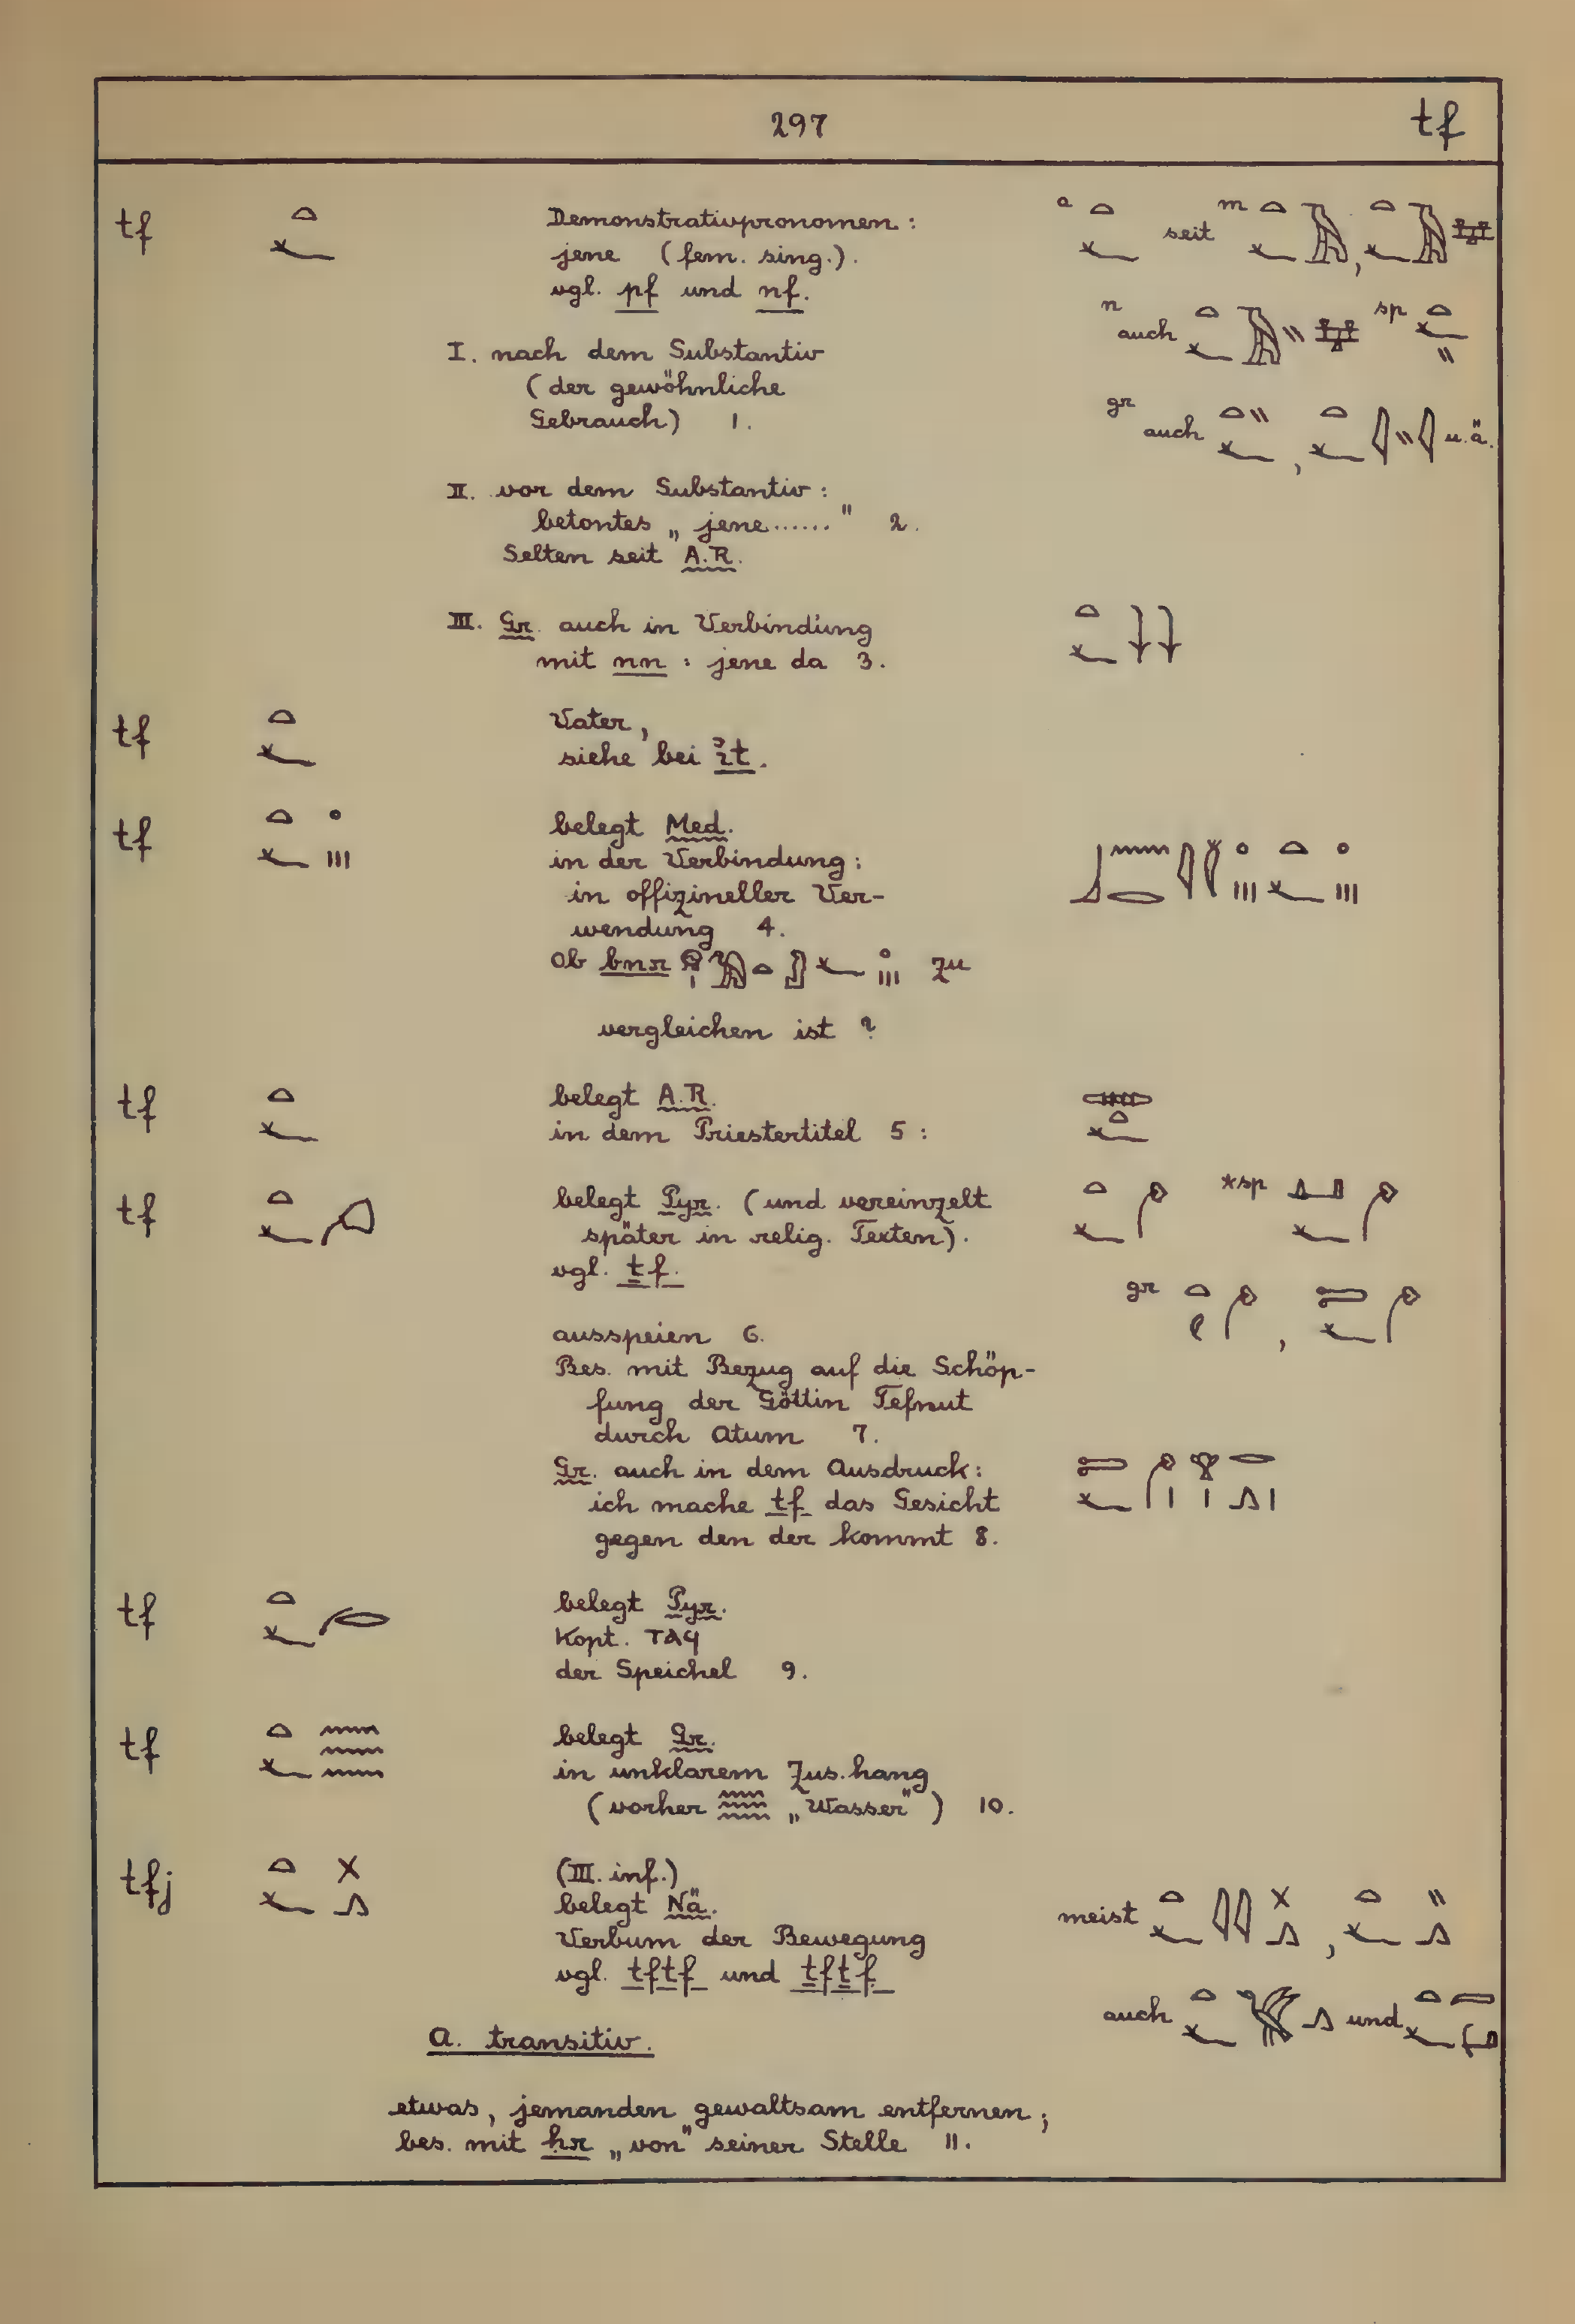 297 tf
tf 𓏏𓆑 Demonstrativpronomen:
jene (fem. sing.).
vgl. pf und nf.
a 𓏏𓆑 seit m 𓏏𓆑𓅓, 𓏏𓆑
n auch sp 𓏏𓆑𓏭
gr auch 𓏏𓏭𓆑, 𓏏𓆑𓇋𓏭𓇋 u.ä.
I. nach dem Substantiv
(der gewöhnliche
Gebrauch) 1.
II. vor dem Substantiv:
betontes „jene......" 2.
Selten seit A.R.
III. Gr. auch in Verbindung
mit nn : jene da 3. 𓏏𓆑𓇓𓇓
tf 𓏏𓆑 Vater,
siehe bei ı͗t.
tf 𓏏𓆑𓈒𓏥 belegt Med.
in der Verbindung:
in offizineller Ver-
wendung 4.
Ob bnr zu
vergleichen ist ?
tf 𓏏𓆑 belegt A.R.
in dem Priestertitel 5: 𓏠𓏏𓆑
tf 𓏏𓆑𓂐 belegt Pyr. (und vereinzelt
später in relig. Texten).
vgl. ṯf.
*sp
gr
ausspeien 6.
Bes. mit Bezug auf die Schöp-
fung der Göttin Tefnut
durch Atum 7.
Gr. auch in dem Ausdruck:
ich mache tf das Gesicht
gegen den der kommt 8.
tf 𓏏𓆑𓂐 belegt Pyr.
Kopt. ⲧⲁϥ
der Speichel 9.
tf 𓏏𓆑𓈗 belegt Gr.
in unklarem Zus.hang
(vorher 𓈗 „Wasser") 10.
tfj 𓏏𓆑𓏴𓂻 (III. inf.)
belegt Nä.
Verbum der Bewegung
vgl. tftf und ṯfṯf
meist 𓏏𓆑𓇋𓇋𓏴𓂻, 𓏏𓆑𓏭𓂻
auch 𓏏𓆑𓅯𓂻 und
A. transitiv.
etwas, jemanden gewaltsam entfernen;
bes. mit ḥr „von" seiner Stelle 11.